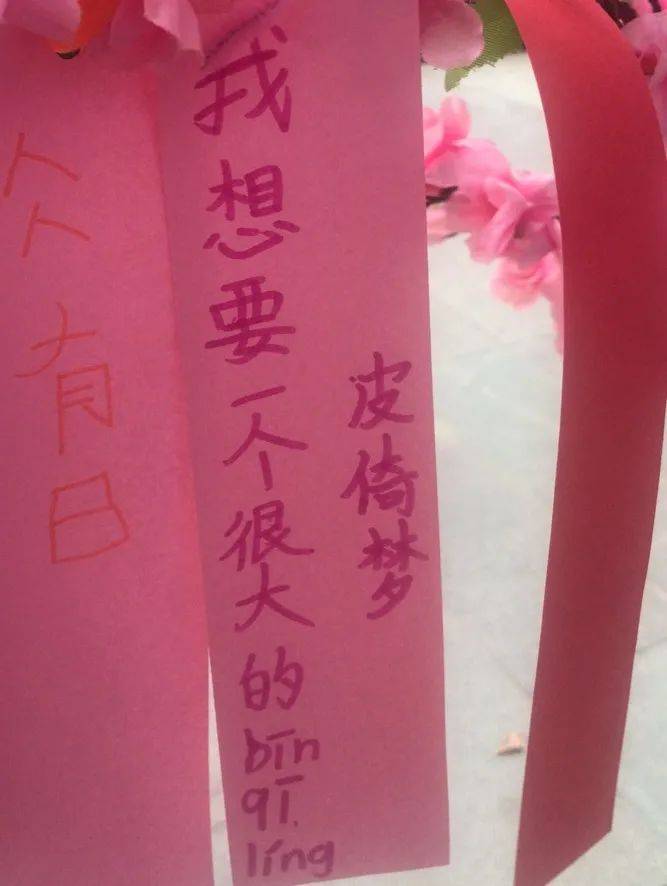 我想要一个很大的bīn qī líng
皮倚梦
人人有日